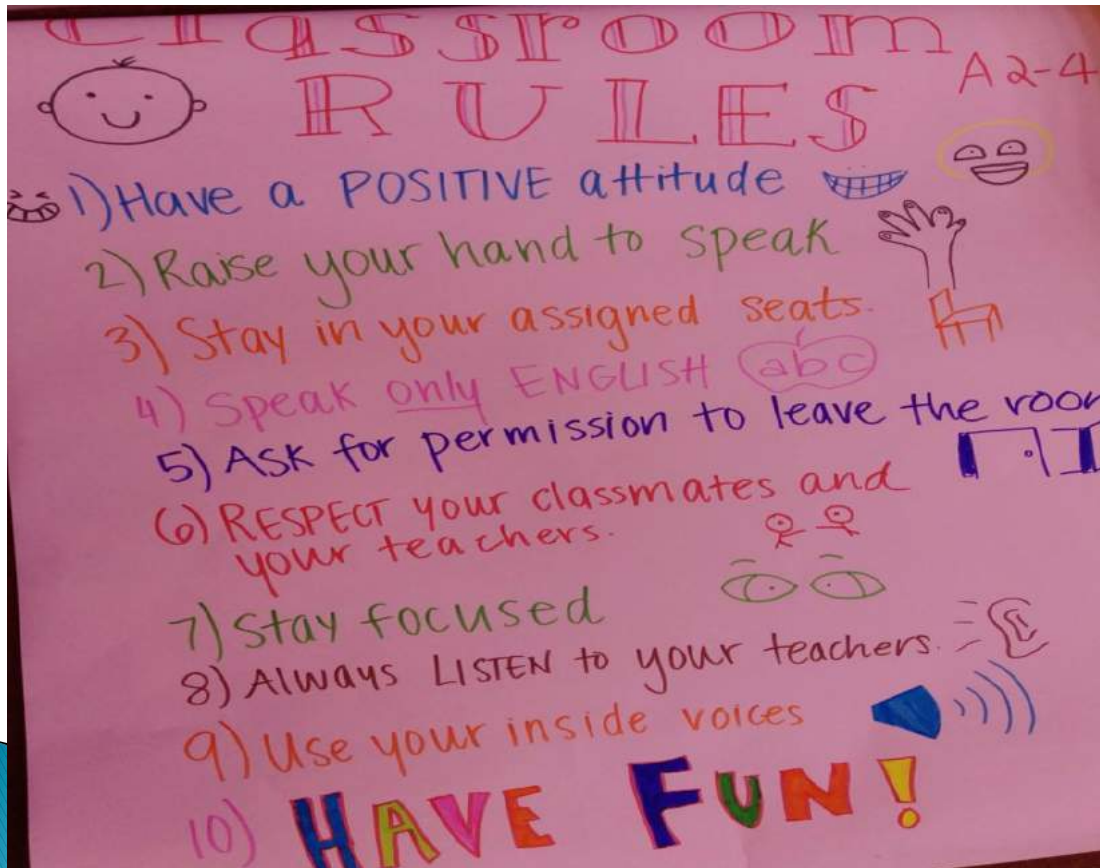 Classroom
RULES
A2-4
1) Have a POSITIVE attitude
2) Raise your hand to speak
3) Stay in your assigned seats.
4) Speak only ENGLISH abc
5) ASK for permission to leave the room
6) RESPECT your classmates and
your teachers.
7) Stay focused
8) Always LISTEN to your teachers.
9) Use your inside voices
10) HAVE FUN!